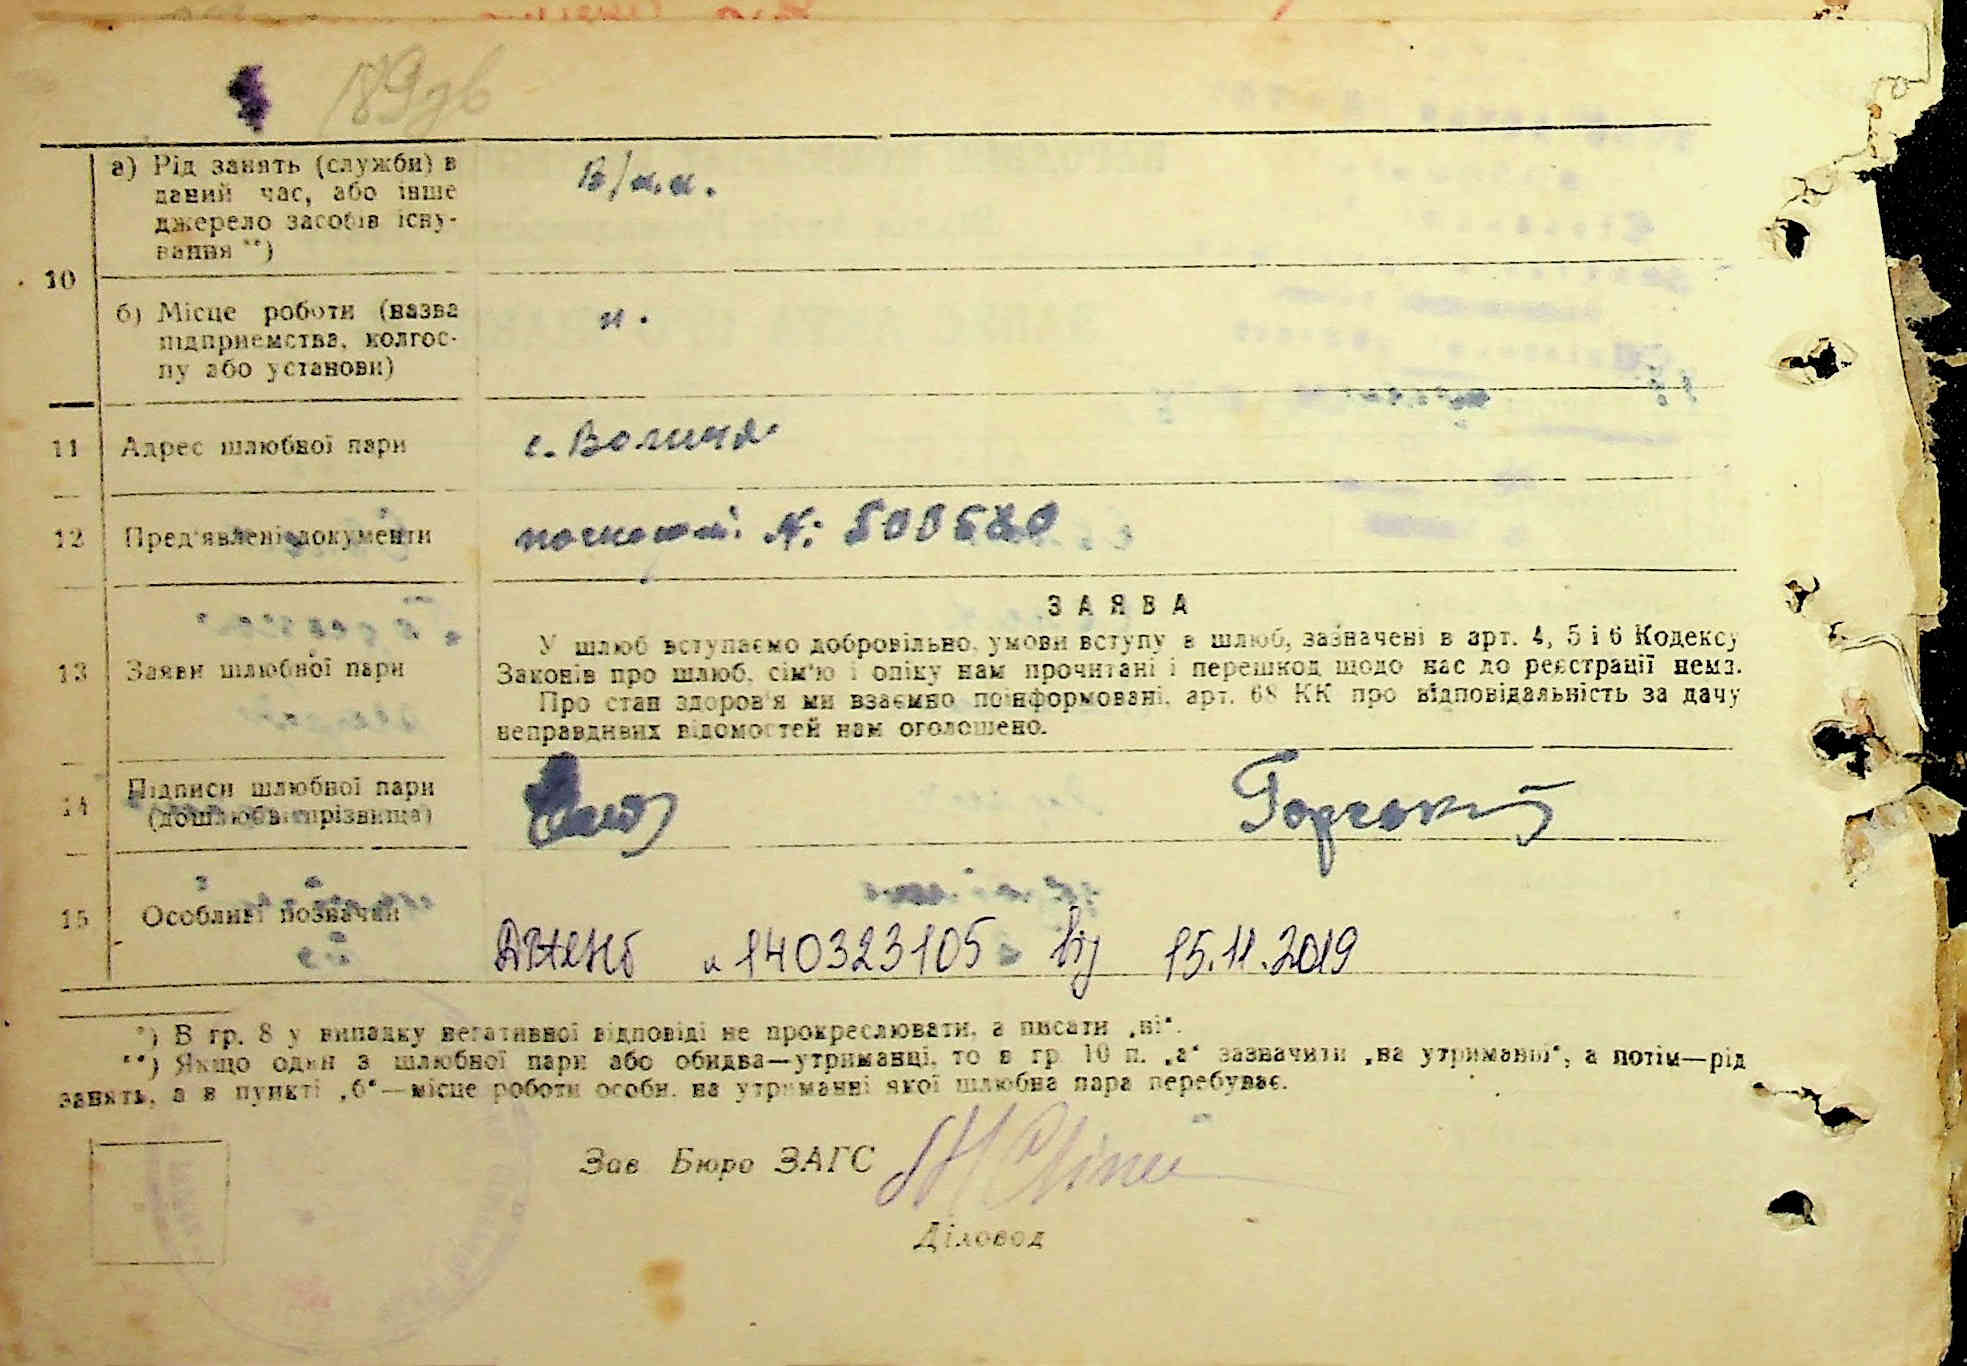 189зв
а) Рід занять (служби) в
даний час, або інше
джерело засобів існу-
вання **)
10
б) Місце роботи (назва
підприємства, колгос-
пу або установи)
н.
11 Адрес шлюбної пари
с. Волиця
12 Пред'явлені документи
№: 500680
ЗАЯВА
У шлюб вступаємо добровільно, умови вступу в шлюб, зазначені в арт. 4, 5 і 6 Кодексу
Законів про шлюб, сім'ю і опіку нам прочитані і перешкод щодо нас до реєстрації нема.
Про стан здоров'я ми взаємно поінформовані, арт. 68 КК про відповідальність за дачу
неправдивих відомостей нам оголошено.
13 Заяви шлюбної пари
14 Підписи шлюбної пари
(дошлюбні прізвища)
Горський
15 Особливі позначки
140323105 від 15.11.2019
*) В гр. 8 у випадку негативної відповіді не прокреслювати, а писати „ні“.
**) Якщо один з шлюбної пари або обидва—утриманці, то в гр. 10 п. „а“ зазначити „на утриманні“, а потім—рід
занять, а в пункті „б“—місце роботи особи, на утриманні якої шлюбна пара перебуває.
Зав Бюро ЗАГС
Діловод